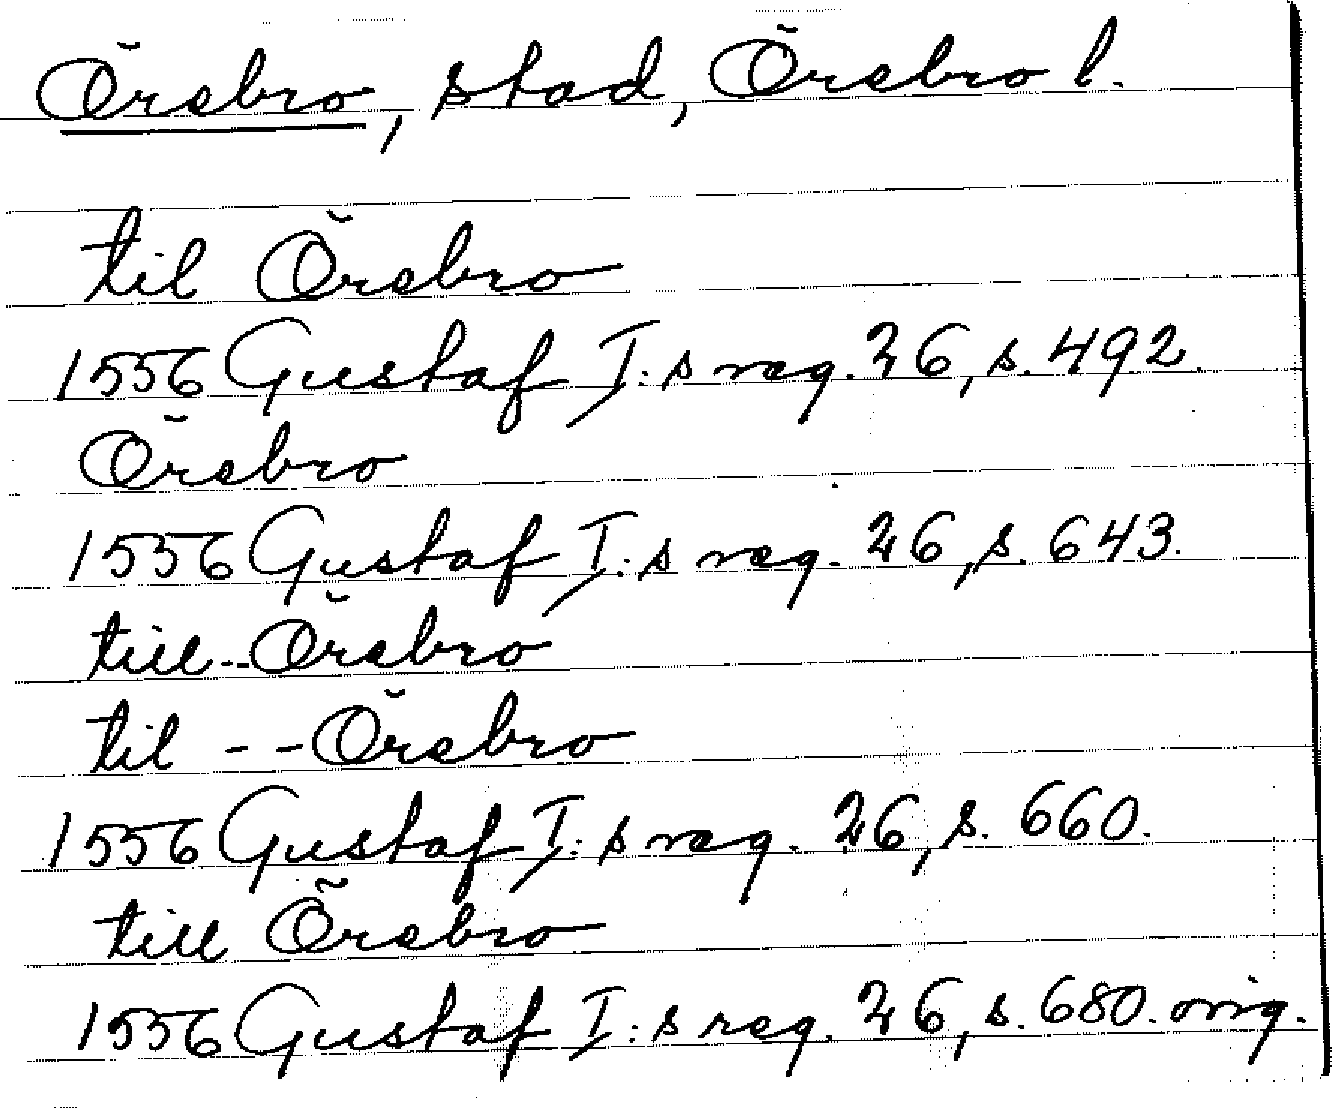 Örebro, stad, Örebro l.
til Örebro
1556 Gustaf I:s reg. 26, s. 492.
Örebro
1556 Gustaf I:s reg. 26, s. 643.
till -- Örebro
til -- Örebro
1556 Gustaf I:s reg. 26, s. 660.
till Örebro
1556 Gustaf I:s reg. 26, s. 680. orig.